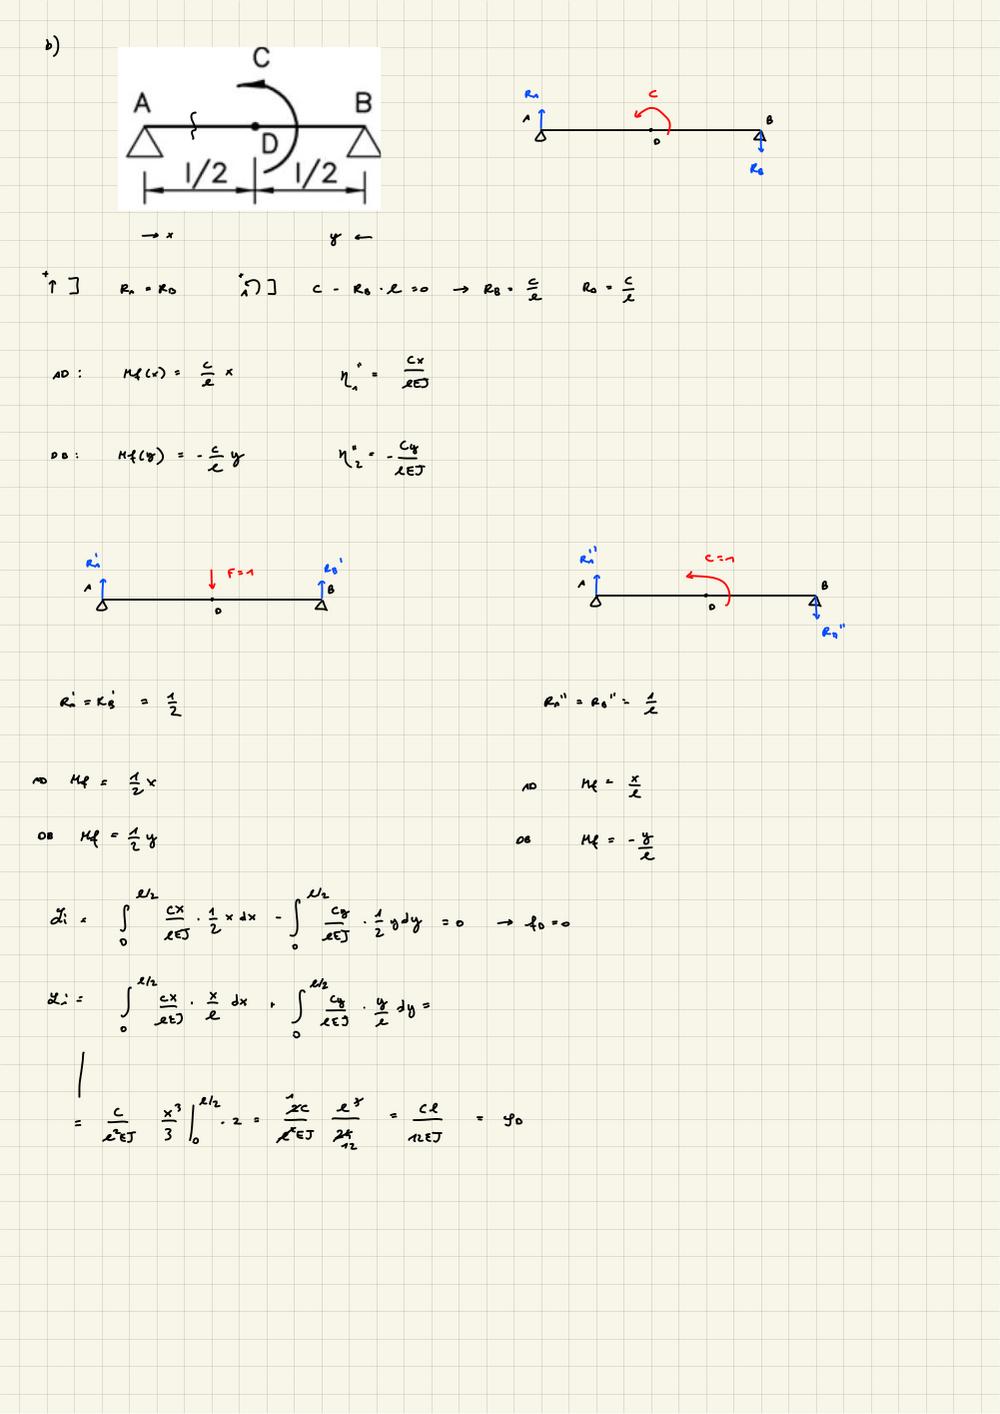 b)
C
A B
D
l/2 l/2
RA C
A B
D
RB
→ x y ←
+↑ ] RA = RB +A↶ ] C - RB · l = 0 → RB = C/l RA = C/l
AD : Mf(x) = C/l x η₁'' = Cx/lEJ
DB : Mf(y) = - C/l y η₂'' = - Cy/lEJ
RA' F=1 RB'
A B
D
RA'' C=1
A B
D
RB''
RA' = RB' = 1/2 RA'' = RB'' = 1/l
AD Mf = 1/2 x AD Mf = x/l
DB Mf = 1/2 y DB Mf = - y/l
ℒi = ∫₀^{l/2} Cx/lEJ · 1/2 x dx - ∫₀^{l/2} Cy/lEJ · 1/2 y dy = 0 → fD = 0
ℒi = ∫₀^{l/2} Cx/lEJ · x/l dx + ∫₀^{l/2} Cy/lEJ · y/l dy =
= C/l²EJ x³/3 |₀^{l/2} · 2 = 2C/l²EJ l³/24 = Cl/12EJ = φD